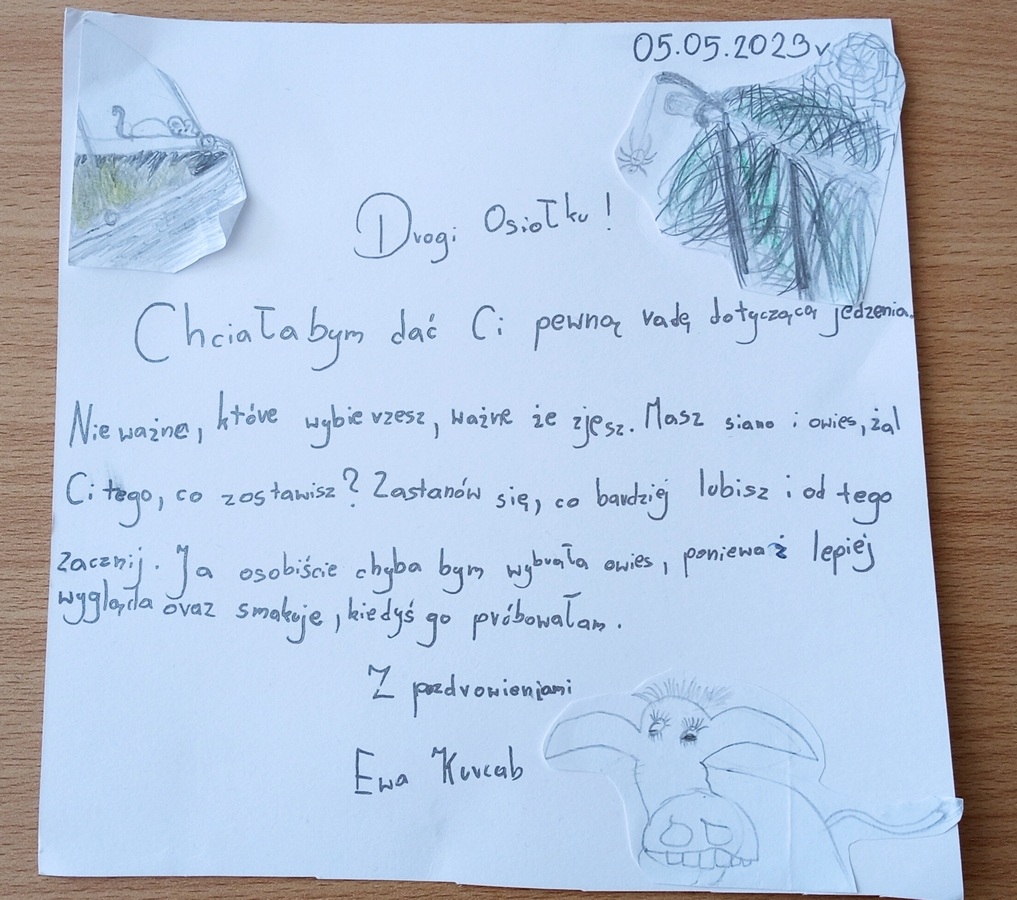 05.05.2023r
Drogi Osiołku!
Chciałabym dać Ci pewną radę dotyczącą jedzenia.
Nie ważne, które wybierzesz, ważne że zjesz. Masz siano i owies, żal
Ci tego, co zostawisz? Zastanów się, co bardziej lubisz i od tego
zacznij. Ja osobiście chyba bym wybrała owies, ponieważ lepiej
wygląda oraz smakuje, kiedyś go próbowałam.
Z pozdrowieniami
Ewa Kurcab